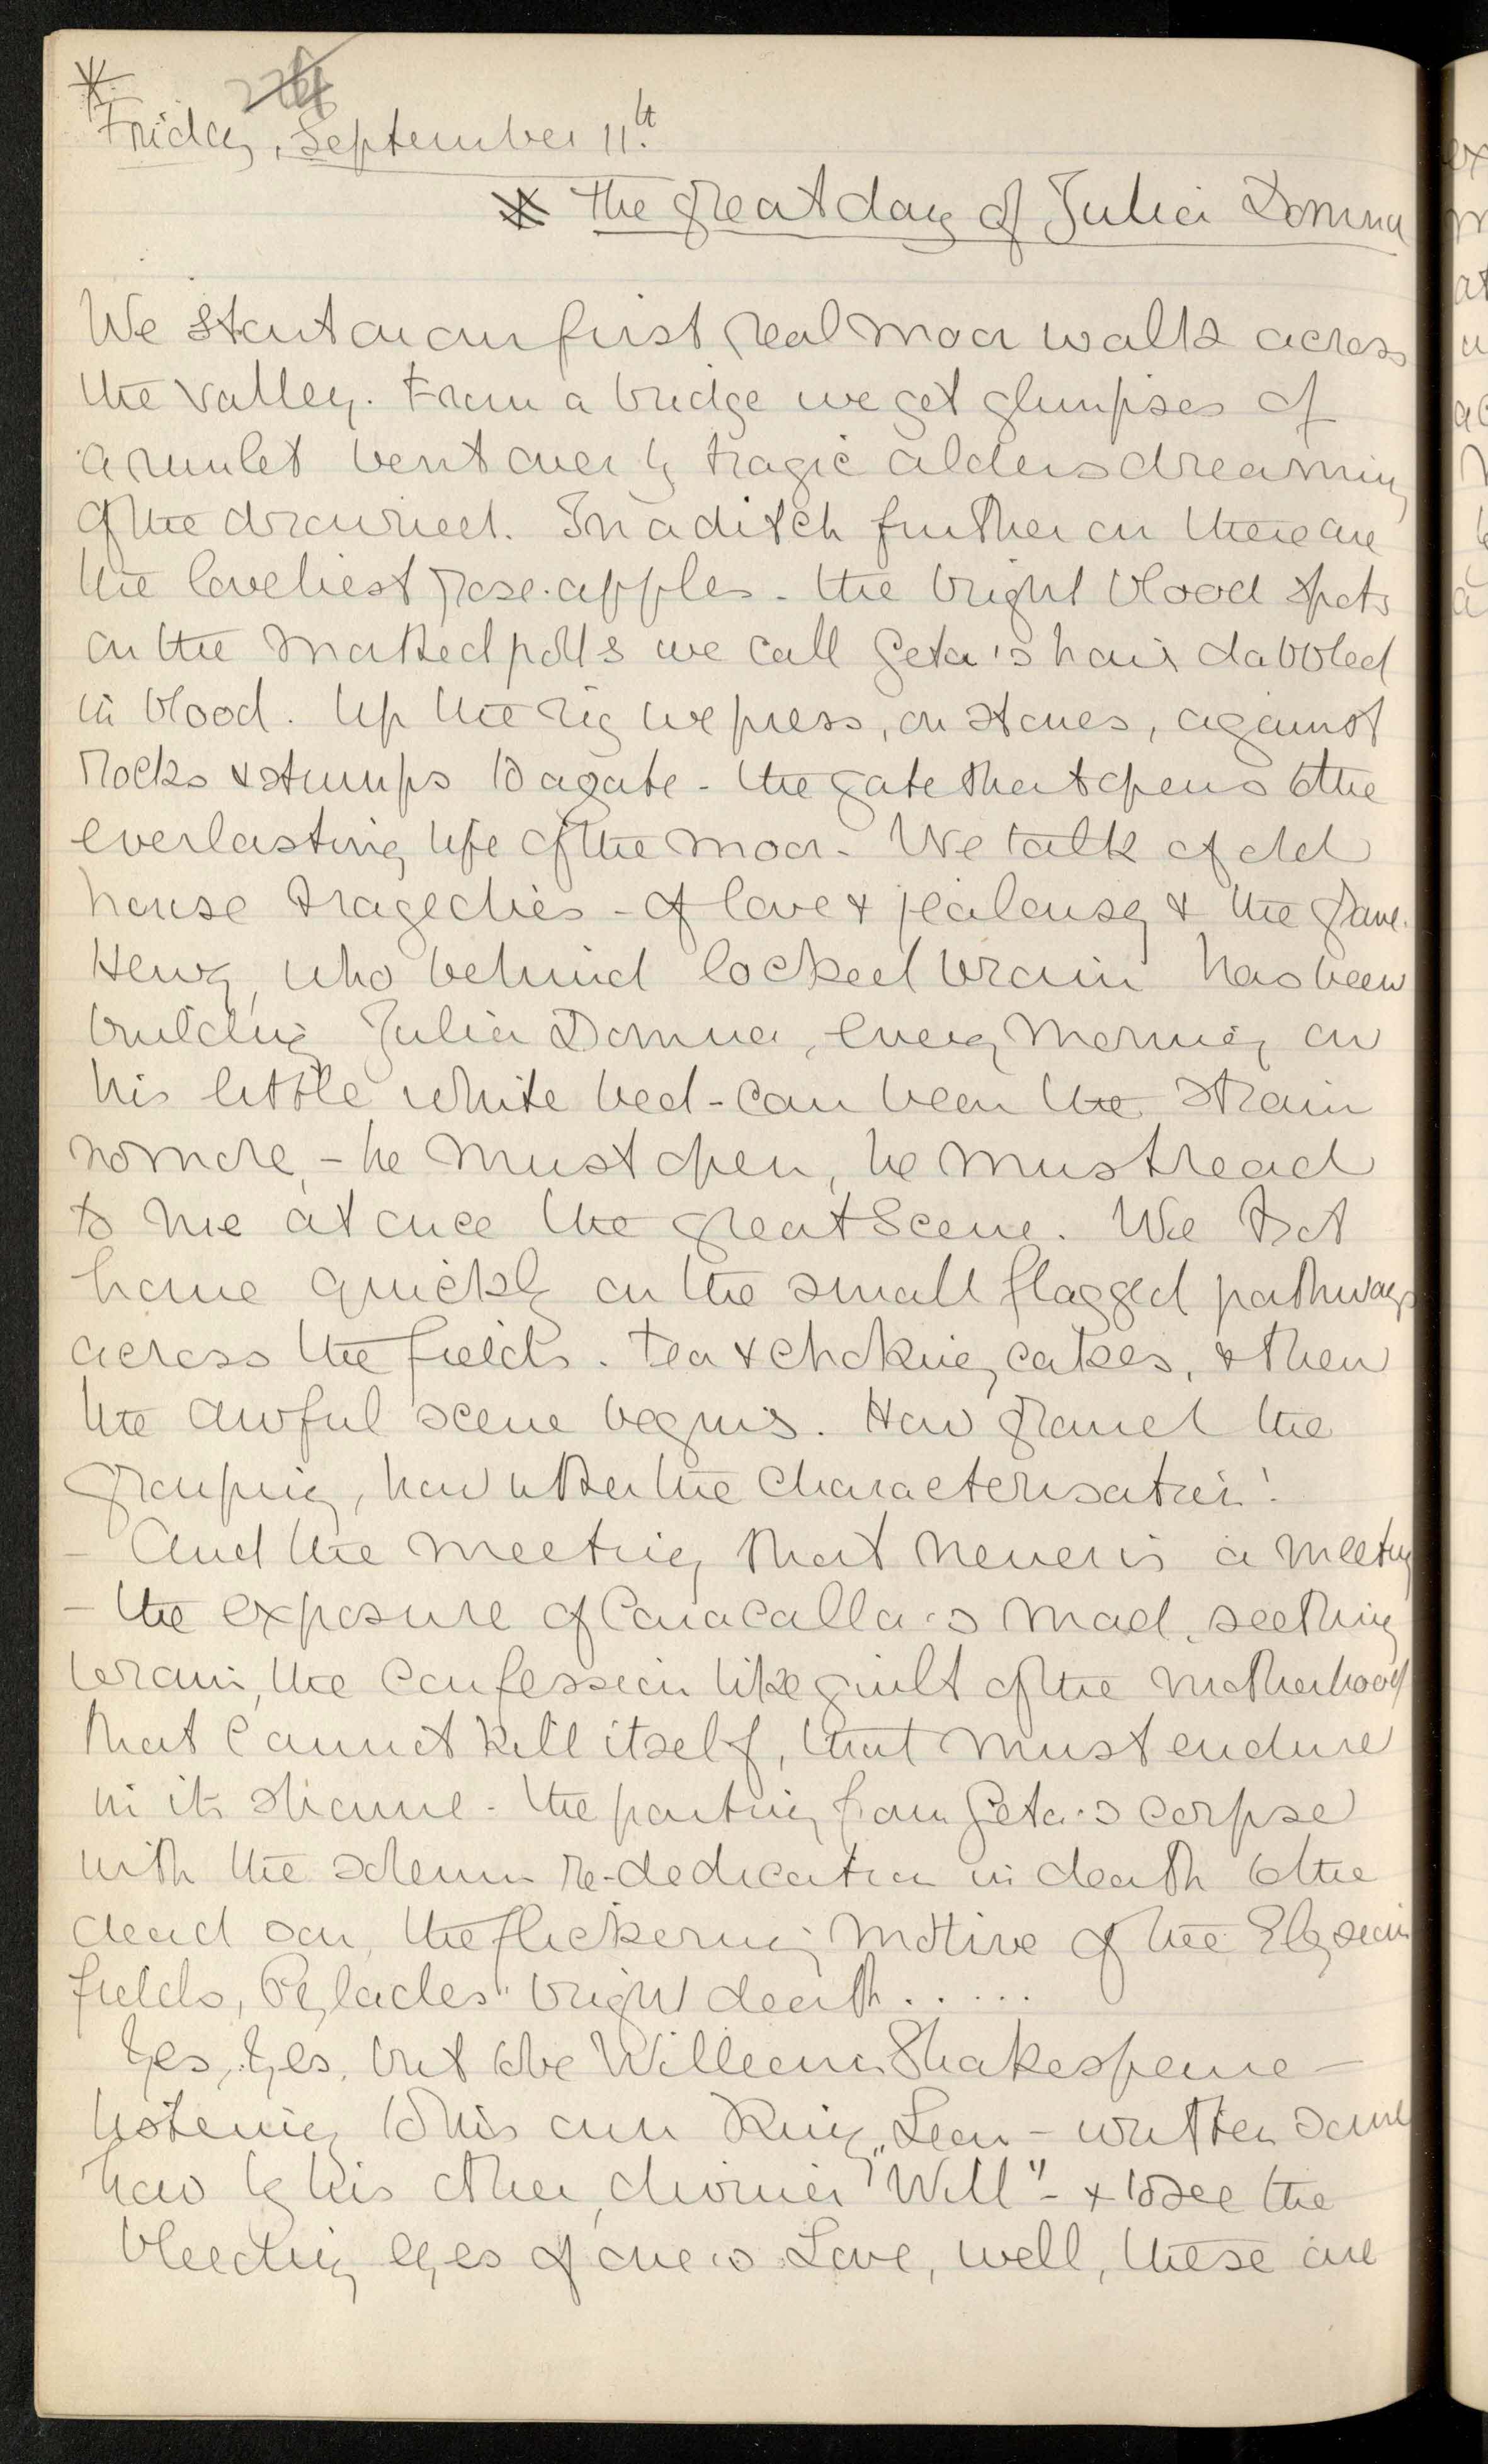 Friday, September 11th.
The great day of Julia Domna
We start on our first real moor walk across
the valley. From a bridge we get glimpses of
a runlet bent over by tragic alders dreaming
of the drowned. In a ditch further on there are
the loveliest rose-apples - the bright blood spots
on the matted polls we call Geta's hair dabbled
in blood. Up the rig we press, on stones, against
rocks & stumps to a gate - the gate that opens to the
everlasting life of the moor. We talk of old
house tragedies - of love & jealousy & the grave.
Henry, who behind locked brain has been
building Julia Domna, every morning on
his little white bed - can bear the strain
no more, - he must open, he must read
to me at once the great scene. We trot
home quickly on the small flagged pathways
across the fields. Tea & choking cakes, & then
the awful scene begins. How grand the
grouping, how utter the characterisation!
- And the meeting that never is a meeting
- the exposure of Caracalla's mad, seething
brain, the confession like guilt of the motherhood
that cannot kill itself, that must endure
in its shame - the parting from Geta's corpse
with the solemn re-dedication in death to the
dead son, the flickering motive of the Elysian
fields, Pylades' bright death . . . . .
Yes, yes, but to be William Shakespeare -
listening to his own King Lear - written some
how by his other, diviner "Will" - & to see the
bleeding eyes of one's Love, well, these are